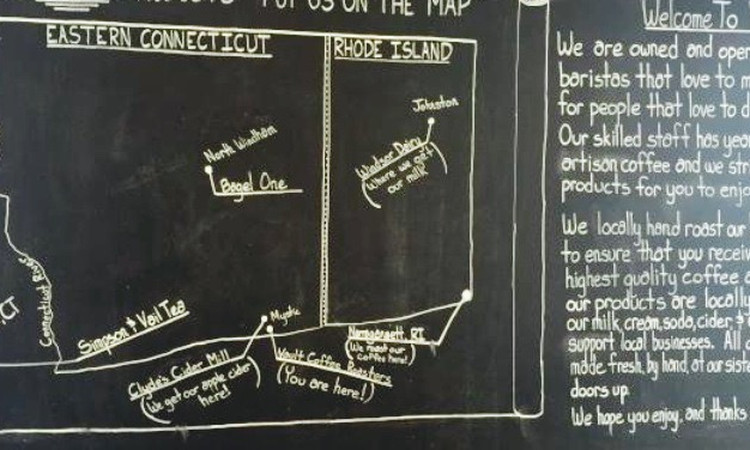 PUT US ON THE MAP
EASTERN CONNECTICUT
RHODE ISLAND
Johnston
Windsor Dairy
(Where we get
our milk)
North Windham
Bagel One
Connecticut River
CT
Simpson & Vail Tea
Mystic
Clyde's Cider Mill
(We get our apple cider
here!)
Vault Coffee Roasters
(You are here!)
Narragansett, RI
(We roast our
coffee here!)
Welcome To
We are owned and oper
baristas that love to m
for people that love to d
Our skilled staff has yea
artisan coffee and we str
products for you to enjo
We locally hand roast our
to ensure that you receiv
highest quality coffee
our products are locall
our milk, cream, soda, cider, &
support local businesses. All
made fresh, by hand, at our siste
doors up.
We hope you enjoy, and thanks